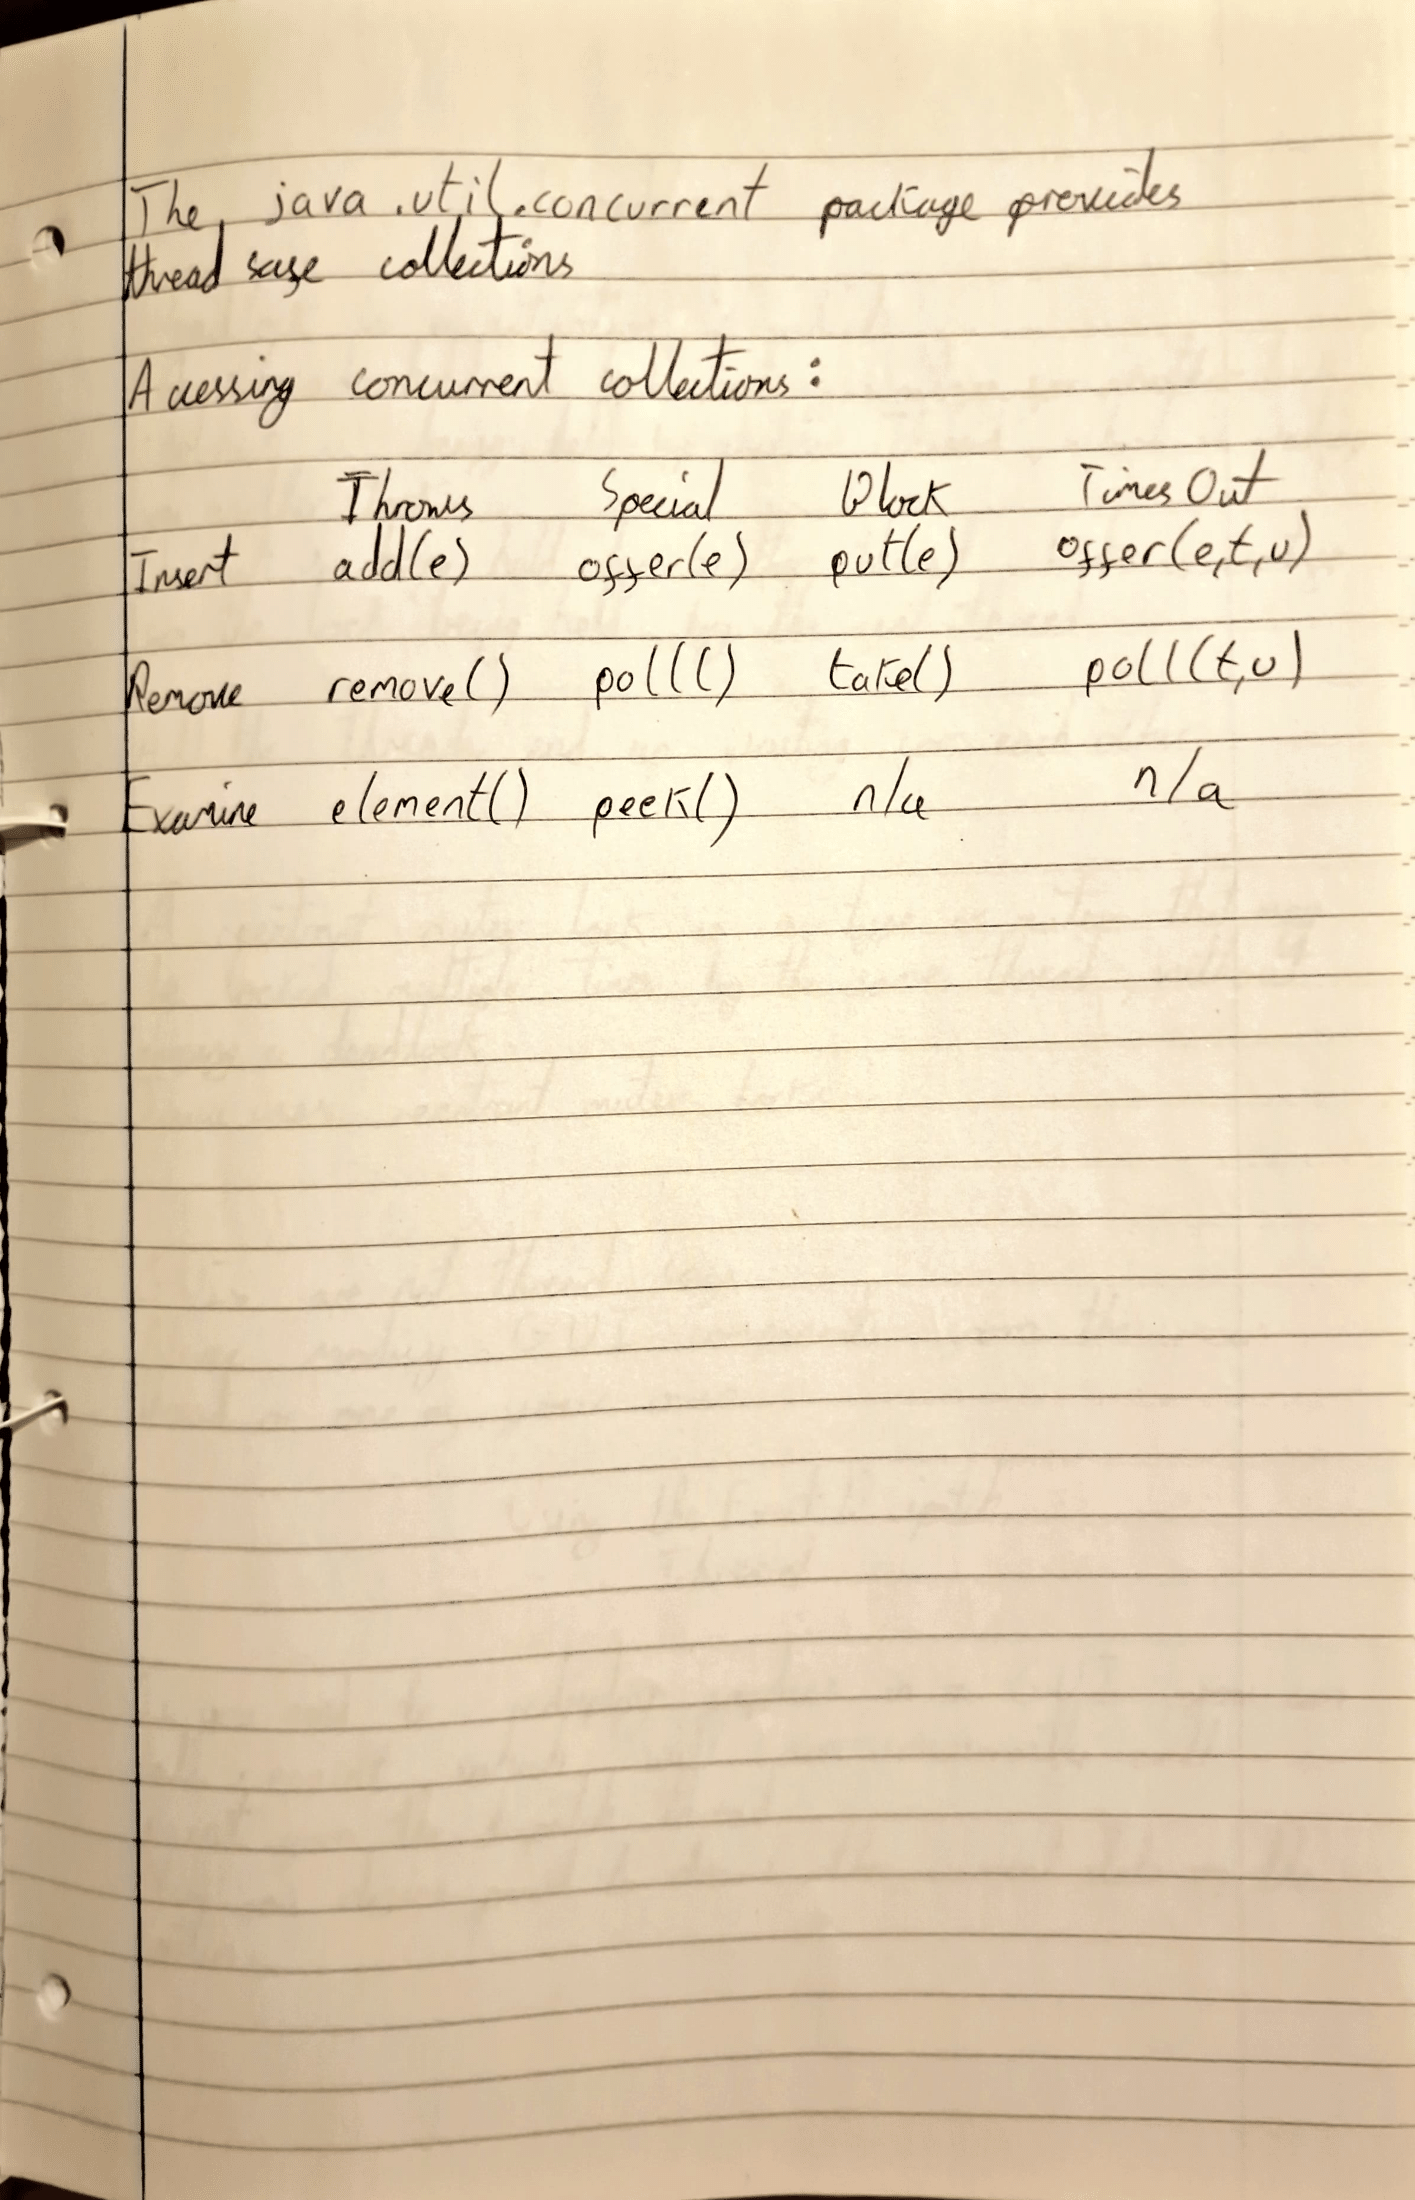 The java.util.concurrent package provides
thread safe collections
Accessing concurrent collections:
Throws Special Block Times Out
Insert add(e) offer(e) put(e) offer(e,t,u)
Remove remove() poll() take() poll(t,u)
Examine element() peek() n/a n/a